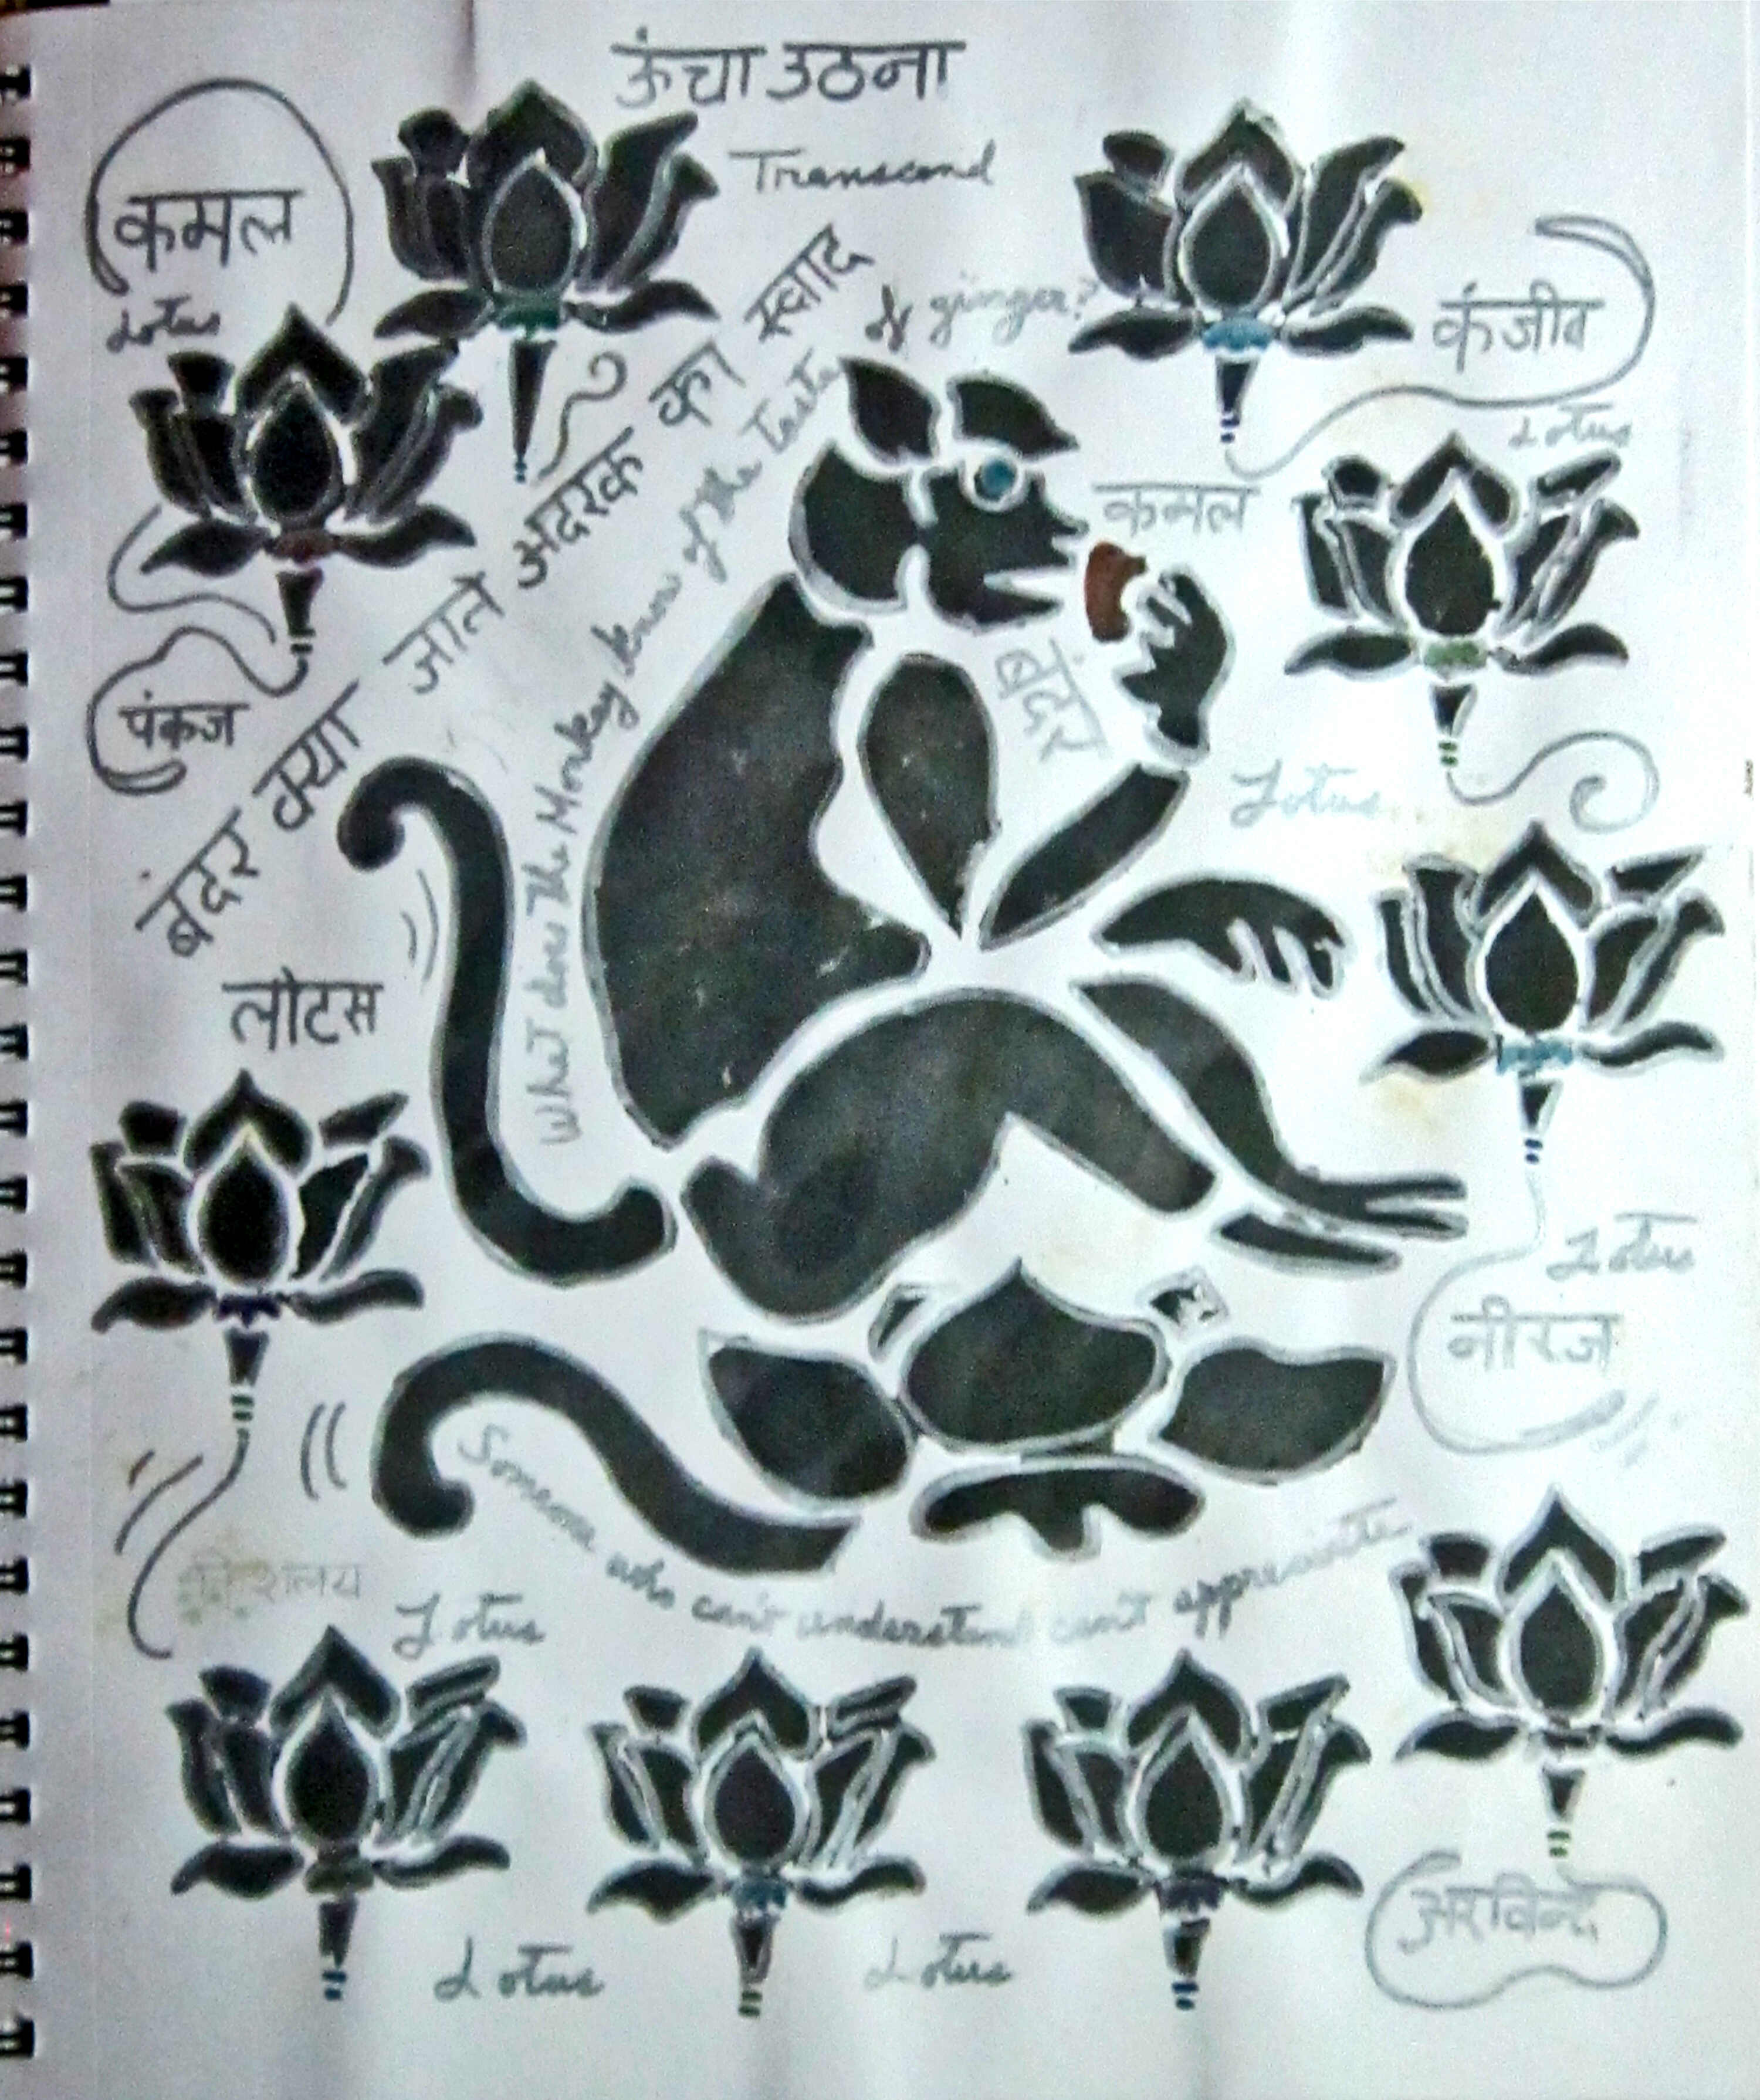 ऊंचा उठना
Transcend
कमल
Lotus
कंजीव
Lotus
बंदर क्या जाते अदरक का स्वाद
What does the Monkey know of the taste of ginger?
कमल
बंदर
पंकज
Lotus
लोटस
Lotus
नीरज
Someone who can't understand can't appreciate
Lotus
अरविन्द
Lotus
Lotus